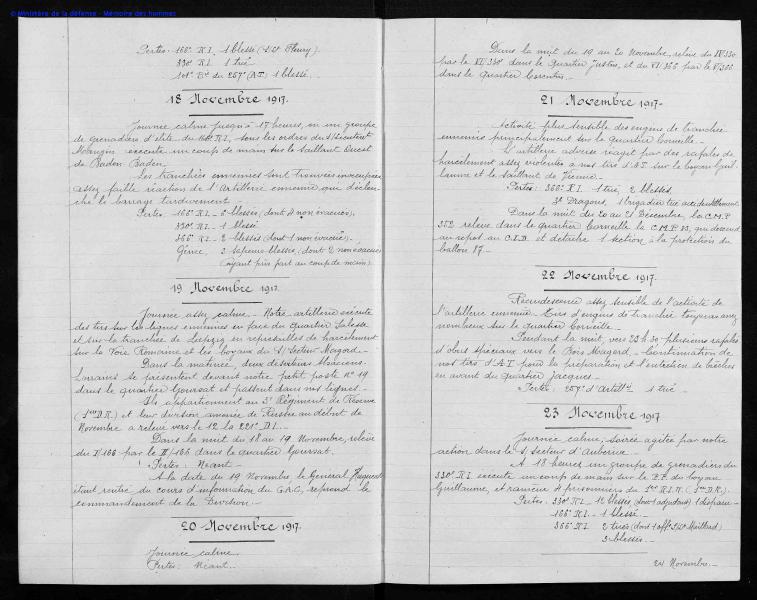 © Ministère de la défense - Mémoire des hommes
Pertes: 166e R.I. 1 blessé (S/Lt Fleury)
330e R.I. 1 tué
101e Bie du 257e (A.T.) 1 blessé.
18 Novembre 1917.
Journée calme jusqu'à 17 heures, où un groupe
de grenadiers d'élite du 166e R.I. sous les ordres du S/Lieutenant
Mangin exécute un coup de main sur le Saillant Ouest
de Baden-Baden.
Les tranchées ennemies sont trouvées inoccupées
assez faible réaction de l'Artillerie ennemie qui déclen-
che le barrage tardivement.
Pertes: 166e R.I. - 6 blessés (dont 4 non évacués).
330e R.I. - 1 blessé
366e R.I. - 2 blessés (dont 1 non évacué).
Génie, 3 sapeurs blessés, (dont 2 non évacués
(ayant pris part au coup de main)
19 Novembre 1917
Journée assez calme - Notre artillerie exécute
des tirs sur les lignes ennemies en face du quartier
et sur la tranchée de Leipzig en représailles de harcèlement
sur la Voie Romaine et les boyaux du S/Secteur Mogord.-
Dans la matinée, deux déserteurs Alsaciens-
Lorrains se présentent devant notre petit poste No 19
dans le quartier Goursat et passent dans nos lignes.-
Ils appartiennent au 3e Régiment de Réserve
(5me D.R.) et leur division amenée de Russie au début de
Novembre a relevé vers le 12 la 221e D.I.-
Dans la nuit du 18 au 19 Novembre, relève
du I/166 par le II/166 dans le quartier Goursat.
Pertes: Néant -
A la date du 19 Novembre, le Général
étant rentré du cours d'information du G.A.C, reprend le
commandement de la Division.-
20 Novembre 1917.
Journée calme.
Pertes: Néant.-
Dans la nuit du 19 au 20 Novembre, relève du IV/330
par le VI/330 dans le Quartier Justin, et du VI/366 par le V/366
dans le Quartier Corentin.-
21 Novembre 1917.-
Activité plus sensible des engins de tranchée
ennemis principalement sur le Quartier Corneille.-
L'artillerie adverse réagit par des rafales de
harcèlement assez violentes à nos tirs d'A.T. sur le boyau Guil-
laume et le saillant de Vienne.-
Pertes: 366e R.I. 1 tué, 2 blessés.
3e Dragons, 1 brigadier tué
Dans la nuit du 20 au 21 Décembre, la C.M.P
352 relève dans le Quartier Corneille la C.M.P. 83, qui descend
au repos au C.I.D. et détache 1 section à la protection du
ballon 87.-
22 Novembre 1917.
Recrudescence assez sensible de l'activité de
l'artillerie ennemie. Tirs d'engins de tranchée toujours assez
nombreux sur le Quartier Corneille.-
Pendant la nuit, vers 23h30 plusieurs rafales
d'obus spéciaux vers le Bois Mogord.- Continuation de
nos tirs d'A.T. pour la préparation et l'entretien de brèches
en avant du Quartier Jacques.-
Pertes: 257e d'Artie 1 tué -
23 Novembre 1917
Journée calme; soirée agitée par notre
action dans le S/Secteur d'Auberive.-
A 18 heures un groupe de grenadiers du
330e R.I. exécute un coup de main sur le P.P. du boyau
Guillaume, et ramène 2 prisonniers du 3me R.I.R. (5me D.R.).
Pertes: 330e R.I. - 12 blessés (dont 1 adjudant) 1 disparu -
166e R.I. - 1 blessé -
366e R.I. 2 tués (dont 1 off. S/Lt Maillard)
3 blessés.-
24 Novembre.-